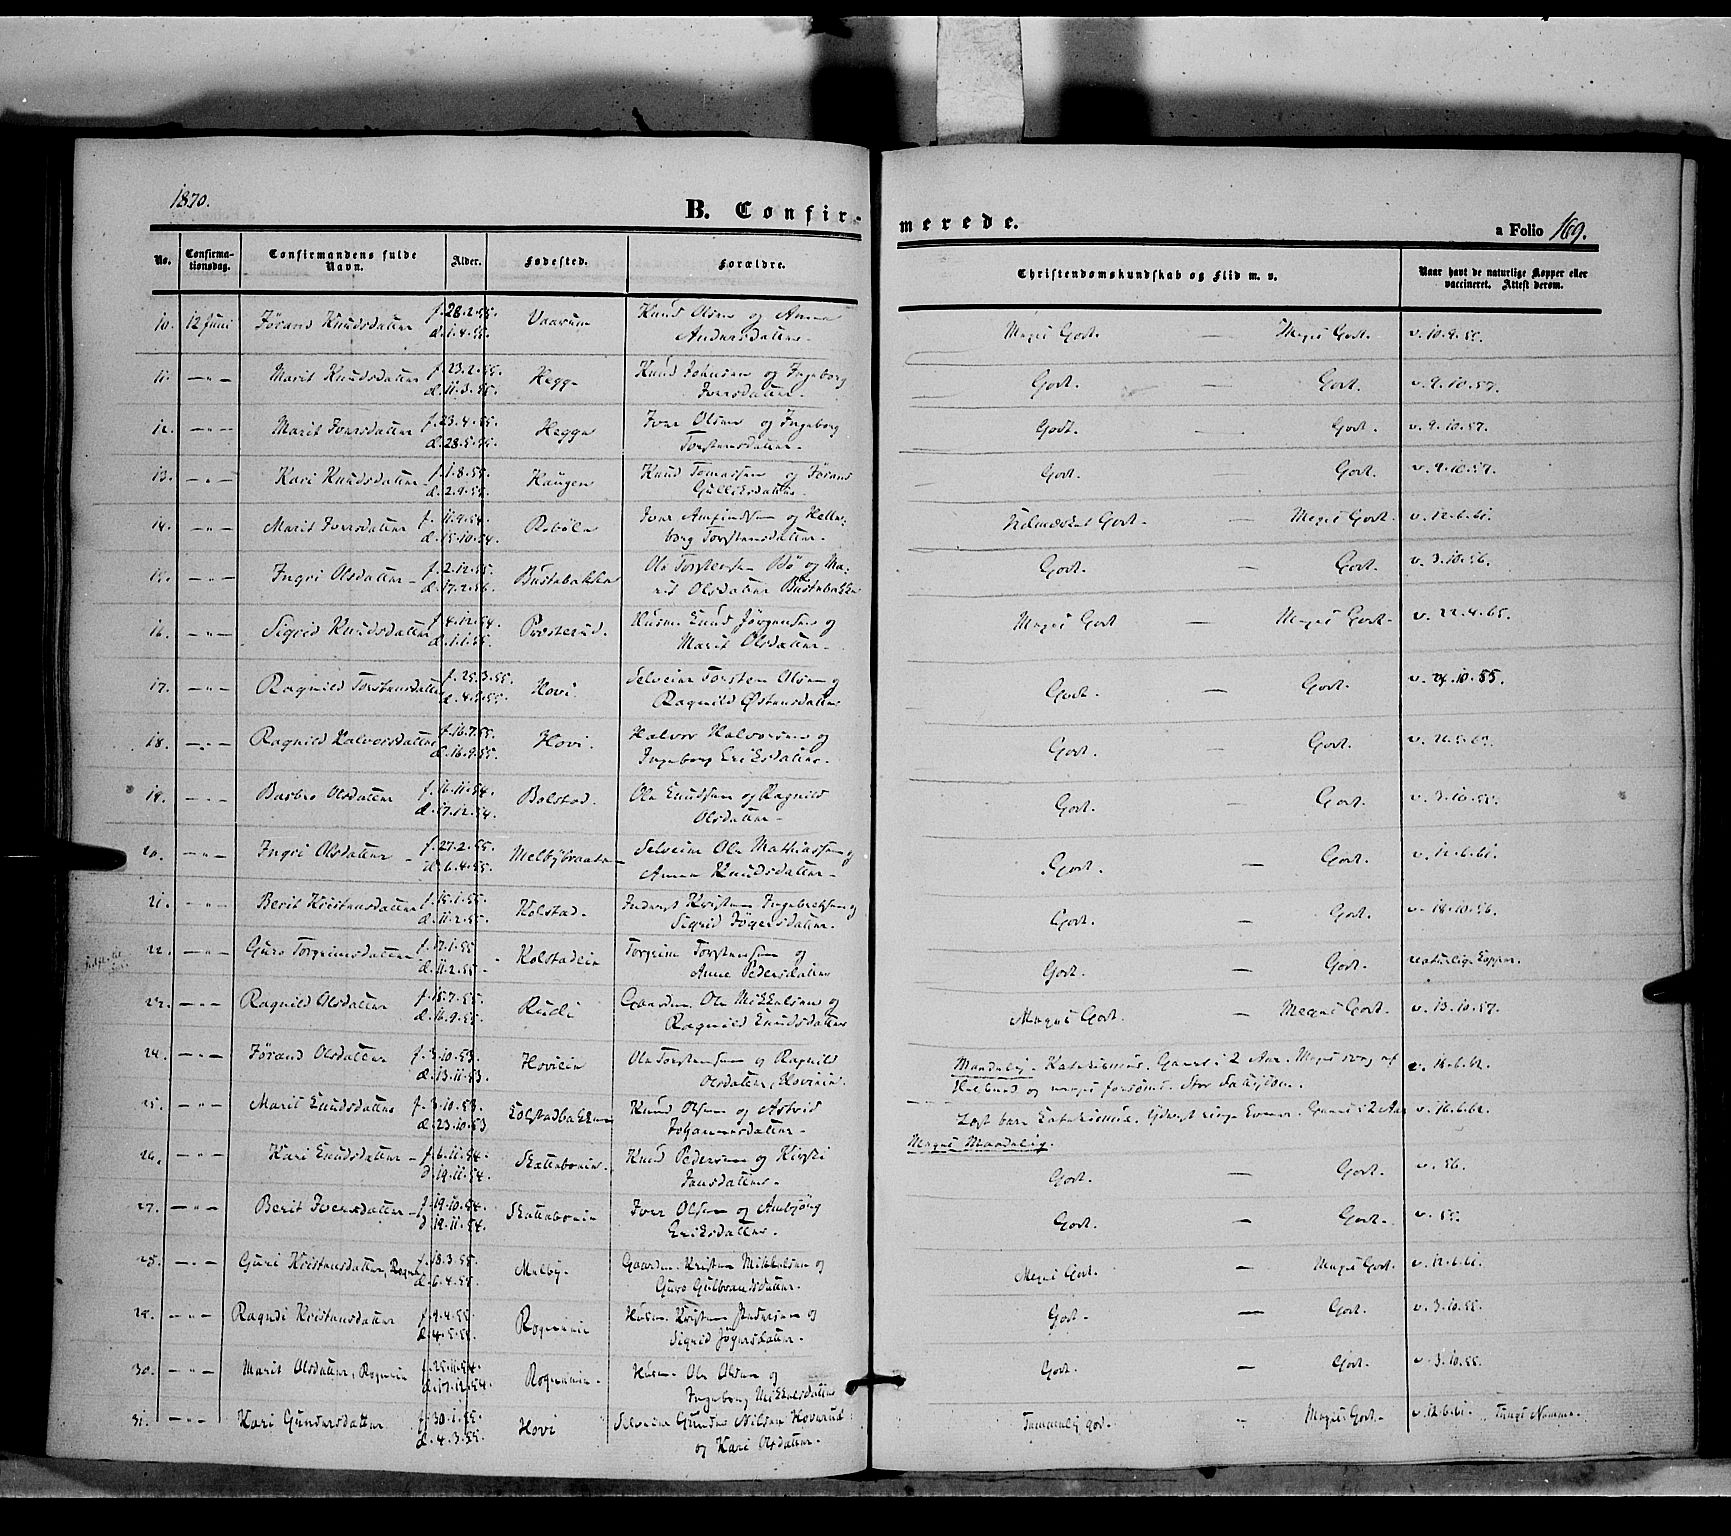 1870.
B. Confir-
merede.
a Folio 169.
No. Confirma-tionsdag. Confirmandens fulde Navn. Alder. Fødested. Forældre. Christendomskundskab og Flid m. v. Naar havt de naturlige Kopper eller vaccineret. Attest derom.
10. 12 Juni Jørand Knudsdatter f. 28.2.55. Vaarum Knud Olsen og Anna Meget Godt. — Meget Godt. v. 10.9.55.
d. 1.4.55. Andersdatter.
11. — " — Marit Knudsdatter f. 23.2.55. Hegge Knud Johnsen og Ingeborg Godt. — Godt. v. 9.10.57.
d. 11.3.55. Iversdatter.
12. — " — Marit Iversdatter f. 23.4.55. Hegge Iver Olsen og Ingeborg Godt. — Godt. v. 9.10.57.
d. 28.5.55. Torstensdatter.
13. — " — Kari Knudsdatter f. 1.8.55. Haugen Knud Tomassen og Jørand Godt. — Godt. v. 9.10.57.
d. 2.9.55. Gulliksdatter.
14. — " — Marit Iversdatter f. 11.9.54. Robøle Iver Amfindsen og Helle- Godt. — Meget Godt. v. 12.6.61.
d. 15.10.54. borg Torstensdatter.
15. — " — Ingri Olsdatter f. 2.12.55. Bustebakke Ole Torstensen Bø og Ma- Godt. — Godt. v. 3.10.56.
d. 17.2.56. rit Olsdatter Bustebakke
16. — " — Sigrid Knudsdatter f. 4.12.54. Præsterud. Husm. Knud Jørgensen og Meget Godt — Meget Godt. v. 22.4.65.
d. 1.1.55. Marit Olsdatter.
17. — " — Ragnild Torstensdatter f. 25.3.55. Hovi. Selveier Torsten Olsen og Godt. — Godt. v. 10.55.
Ragnild Østensdatter
18. — " — Ragnild Halvorsdatter f. 16.7.55. Hovi. Halvor Halvorsen og Godt. — Godt.
d. 16.9.55. Ingeborg Eriksdatter.
19. — " — Barbro Olsdatter f. 16.11.54. Bolstad. Ole Knudsen og Ragnild Godt. — Godt. v. 3.10.55.
d. 17.12.54. Olsdatter.
20. — " — Ingri Olsdatter f. 27.2.55. Melbybraaten Selveier Ole Mathiassen og Godt. — Godt. v. 12.6.61.
d. 6.4.55. Anna Knudsdatter.
21. — " — Berit Kristensdatter f. 15.1.55. Kolstad. Inderst Kristen Ingebretsen og Godt. — Godt. v. 18.10.56.
d. 11.2.55. Sigrid Jøgersdatter.
22. — " — Guro Torgrimsdatter f. 17.1.55. Kolstadeie Torgrim Torstensen og Godt. — Godt. naturlige Kopper.
d. 11.2.55. Anne Pedersdatter
23. — " — Ragnild Olsdatter f. 15.7.55. Rudi Gaardm. Ole Mikkelsen og Meget Godt. — Meget Godt. v. 13.10.57.
d. 16.9.55. Ragnild Knudsdatter
24. — " — Jørand Olsdatter f. 3.10.53. Hovieie Ole Torstensen og Ragnild Maadelig. Katekismus. Gaaet i 2 Aar. Meget svag af v. 12.6.61.
d. 13.11.53. Olsdatter, Hovieie. Helbred og meget forsømt.
25. — " — Marit Knudsdatter f. 3.10.53. Kolstadbakken Knud Olsen og Astrid Læst bare Katekismus. Yderst ringe Evner. Gaaet i 2 Aar v. 12.6.61.
d. 23.10.53 Johannesdatter. Meget Maadelig.
26. — " — Kari Knudsdatter f. 6.11.54. Skatteboeie. Knud Pedersen og Kirsti Godt. — Godt. v. 56.
d. 19.11.54. Jansdatter.
27. — " — Berit Iversdatter f. 19.10.54. Skatteboeie Iver Olsen og Ambjørg Godt. — Godt. v. 55.
d. 19.11.54. Eriksdatter.
28. — " — Guri Kristensdatter, f. 18.3.55. Melby. Gaardm. Kristen Mikkelsen og Meget Godt. — Meget Godt. v. 12.6.61.
d. 6.4.55. Guro Gulbrandsdatter.
29. — " — Ragndi Kristensdatter f. 9.4.55. Rogneeie Husm. Kristen Andersen og Godt. — Godt. v. 3.10.55.
d. 4.5.55. Sigrid Jøgersdatter.
30. — " — Marit Olsdatter, Rogneie f. 25.11.54. Rogneeie. Husm. Ole Olsen og Godt. — Godt. v. 3.10.55.
d. 17.12.54. Ingeborg Mikkelsdatter
31. — " — Kari Gundersdatter f. 30.1.55. Hovi Selveier Gunder Nilsen Hoverud Temmelig god. — Meget Godt. v. 12.6.61.
d. 4.3.55. og Kari Olsdatter.